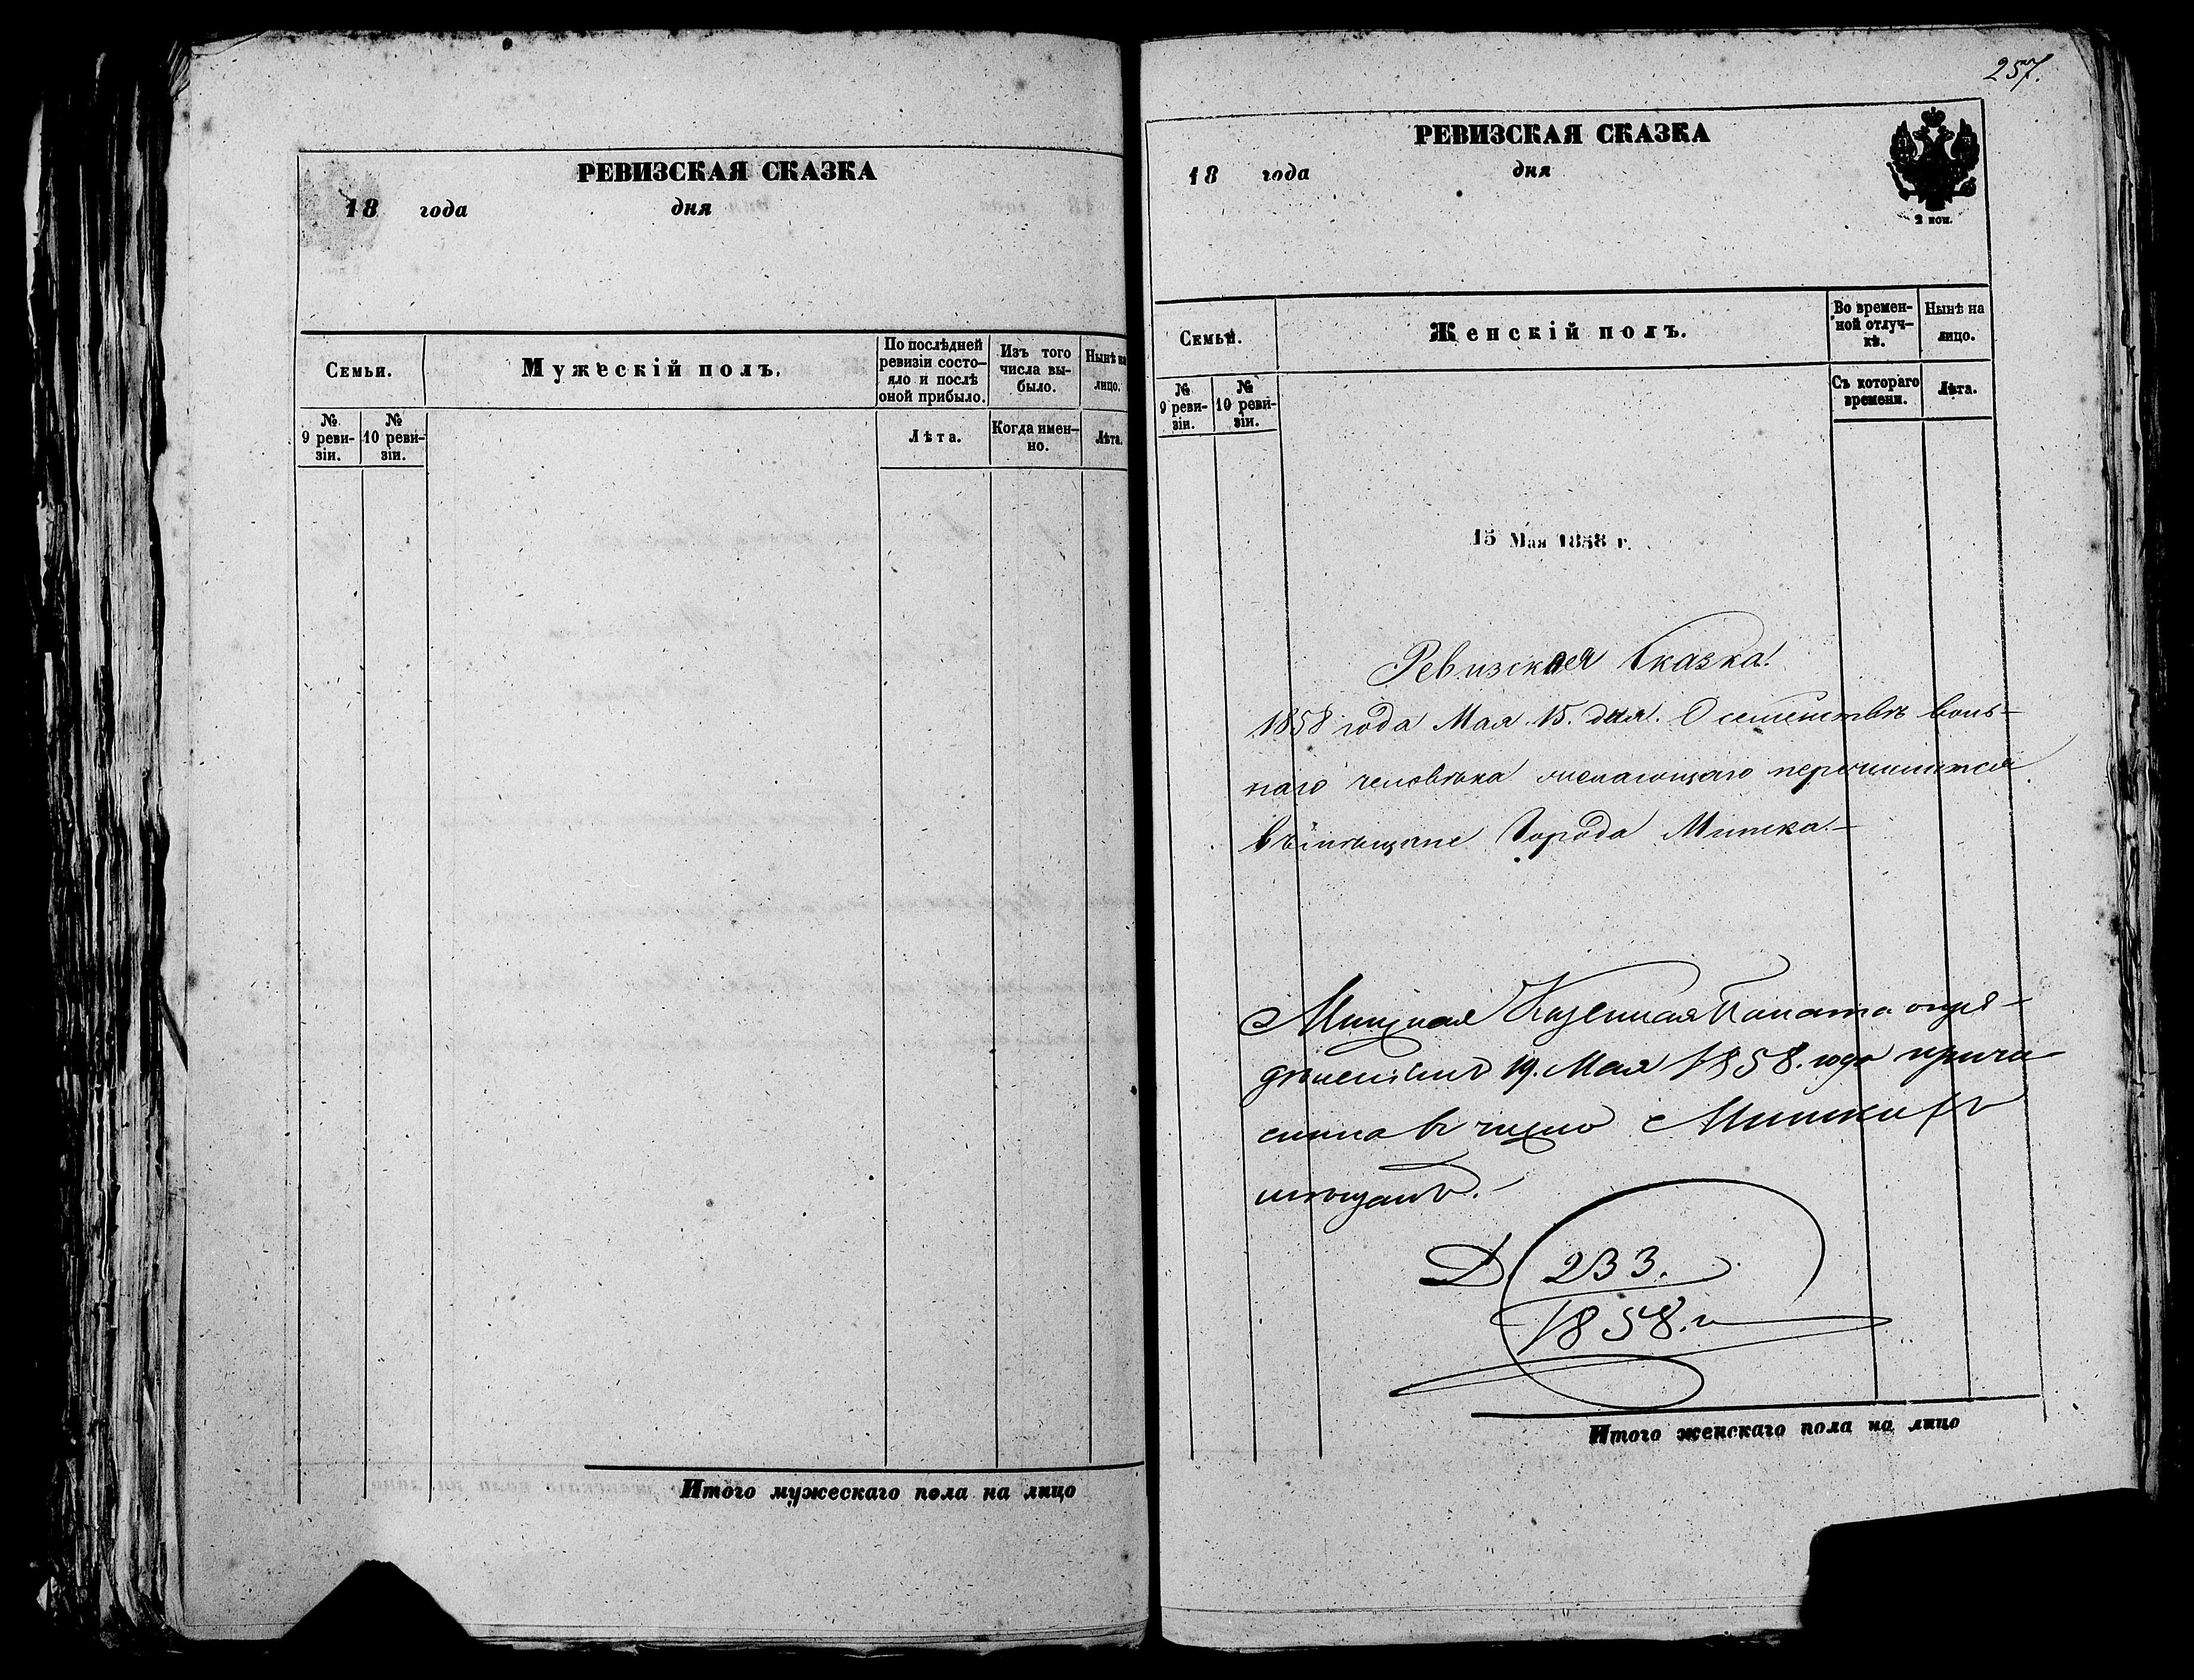 РЕВИЗСКАЯ СКАЗКА
18 года дня
Семьи.
Мужескій полъ.
По послѣдней
ревизіи состо-
яло и послѣ
оной прибыло.
Изъ того
числа вы-
было.
Нынѣ на
лицо.
№
9 реви-
зіи.
№
10 реви-
зіи.
Лѣта.
Когда имен-
но.
Лѣта.
Итого мужескаго пола на лицо
257.
РЕВИЗСКАЯ СКАЗКА
18 года дня
2 коп.
Семьи.
Женскій полъ.
Во времен-
ной отлуч-
кѣ.
Нынѣ на
лицо.
№
9 реви-
зіи.
№
10 реви-
зіи.
Съ котораго
времени.
Лѣта.
15 Мая 1858 г.
Ревизская Сказка.
1858 года Мая 15. дня. О семействѣ воль-
наго человѣка желающаго перечислится
въ мѣщане Города Минска.
Минская Казенная Палата опре-
дѣленіемъ 19. Мая 1858. года причи-
слила въ число Минскихъ
мѣщанъ.
Д. 233.
1858. г
Итого женскаго пола на лицо